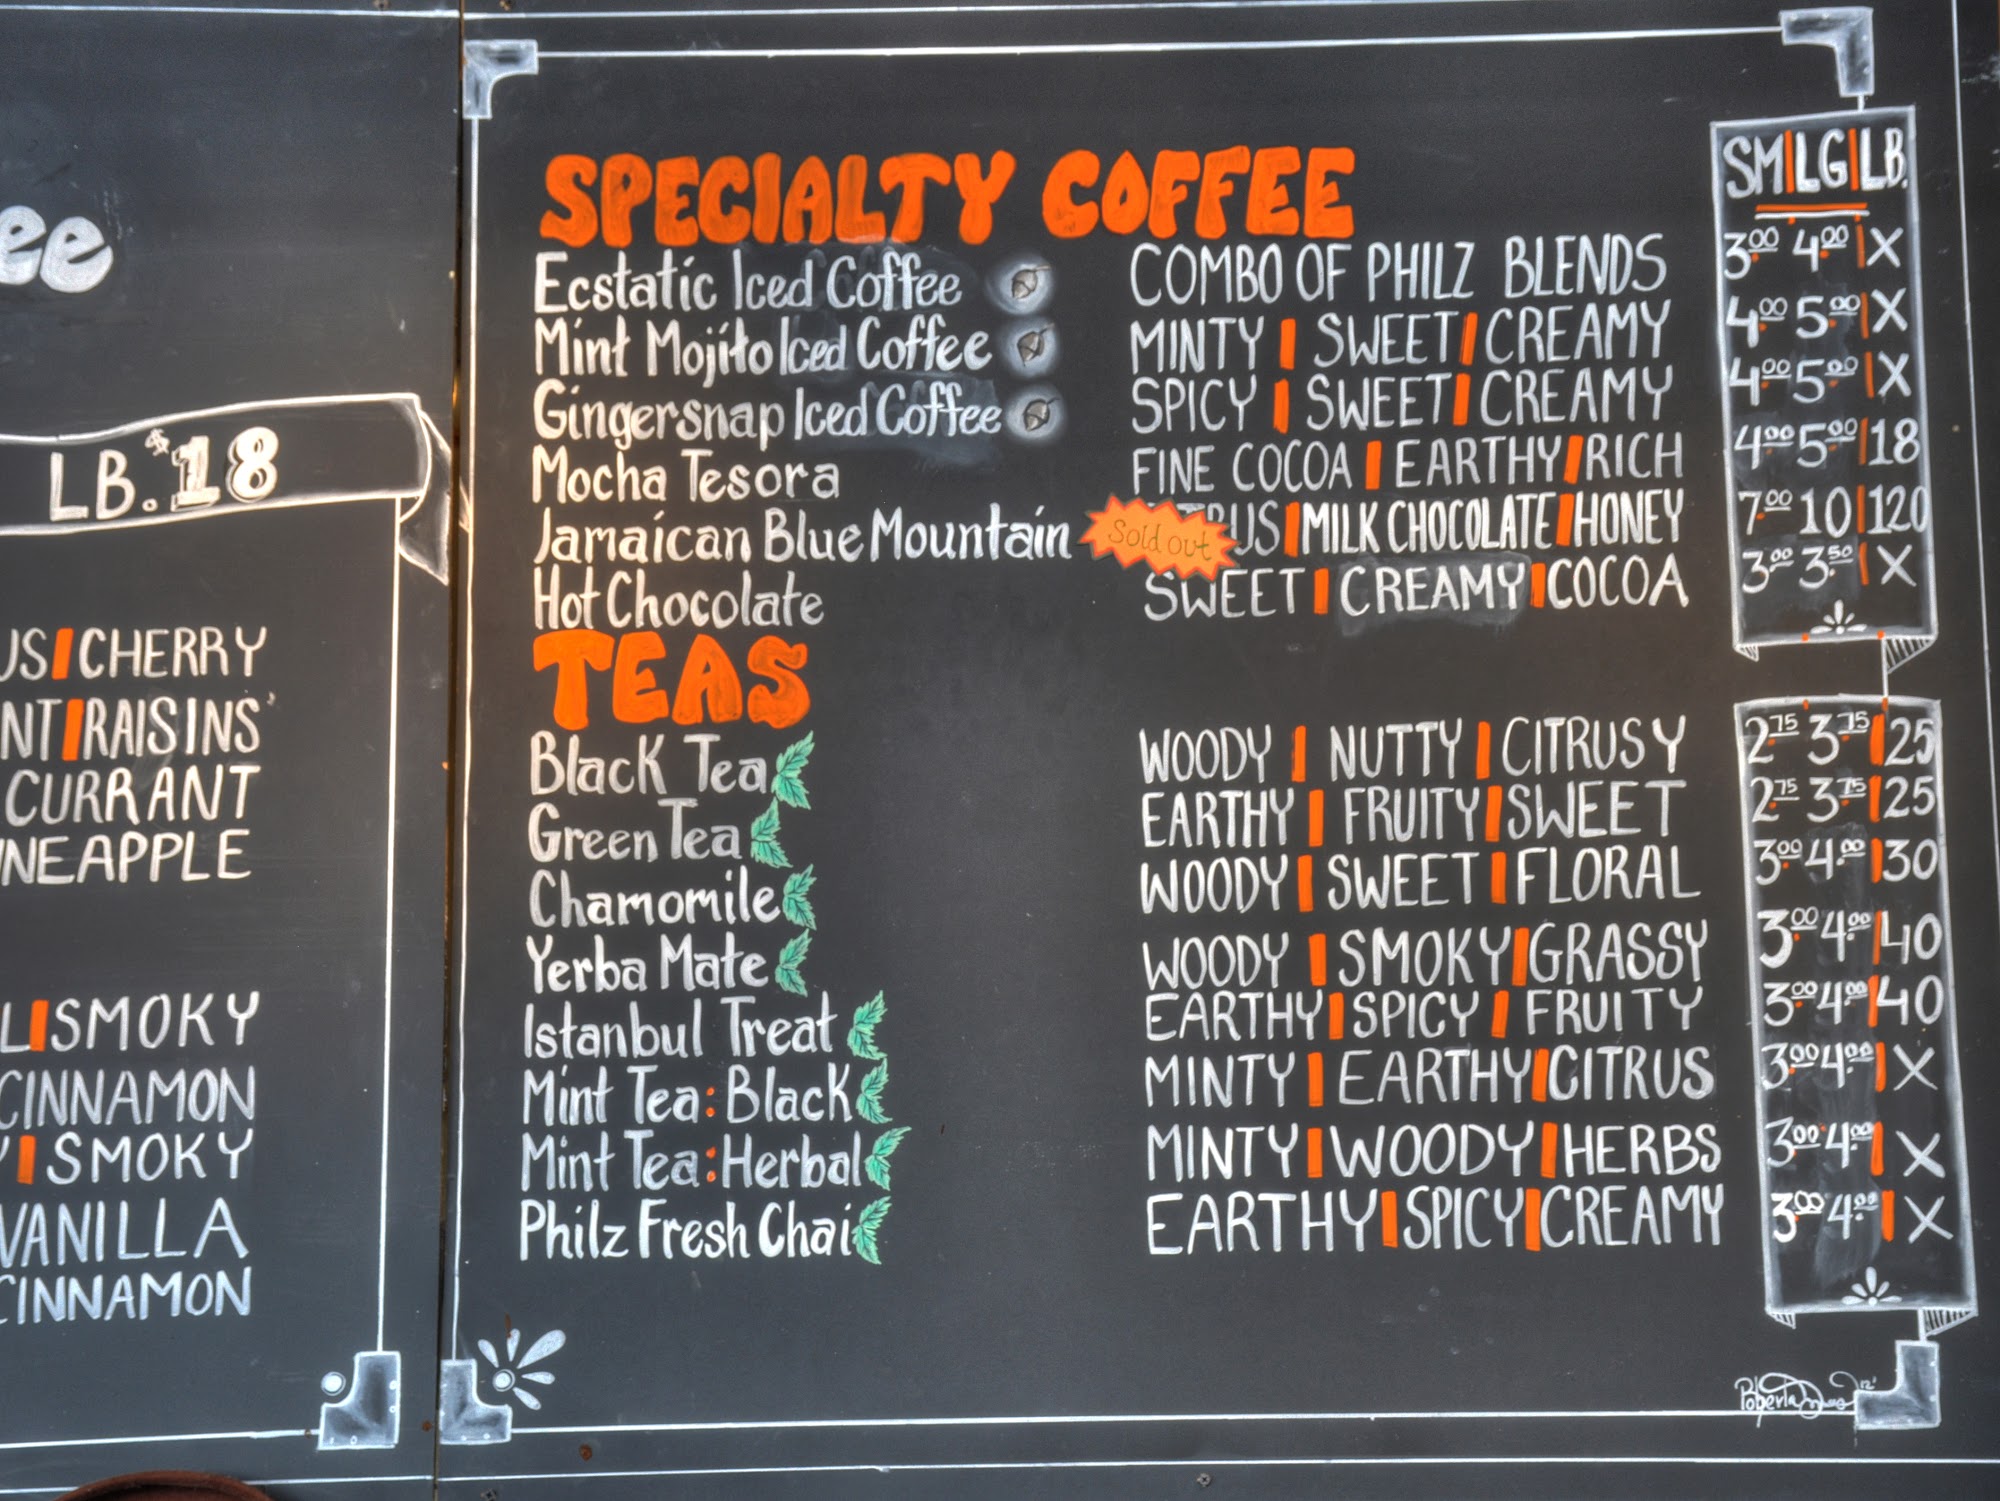 ee
LB. $18
US | CHERRY
NT | RAISINS
CURRANT
NEAPPLE
L | SMOKY
CINNAMON
Y | SMOKY
VANILLA
CINNAMON
SPECIALTY COFFEE
SM | LG | LB.
Ecstatic Iced Coffee COMBO OF PHILZ BLENDS 3.00 4.00 | X
Mint Mojito Iced Coffee MINTY | SWEET | CREAMY 4.00 5.00 | X
Gingersnap Iced Coffee SPICY | SWEET | CREAMY 4.00 5.00 | X
Mocha Tesora FINE COCOA | EARTHY | RICH 4.00 5.00 | 18
Jamaican Blue Mountain Sold out RUS | MILK CHOCOLATE | HONEY 7.00 10 | 120
Hot Chocolate SWEET | CREAMY | COCOA 3.00 3.50 | X
TEAS
Black Tea WOODY | NUTTY | CITRUSY 2.75 3.75 | 25
Green Tea EARTHY | FRUITY | SWEET 2.75 3.75 | 25
Chamomile WOODY | SWEET | FLORAL 3.00 4.00 | 30
Yerba Mate WOODY | SMOKY | GRASSY 3.00 4.00 | 40
Istanbul Treat EARTHY | SPICY | FRUITY 3.00 4.00 | 40
Mint Tea: Black MINTY | EARTHY | CITRUS 3.00 4.00 | X
Mint Tea: Herbal MINTY | WOODY | HERBS 3.00 4.00 | X
Philz Fresh Chai EARTHY | SPICY | CREAMY 3.00 4.00 | X
12'